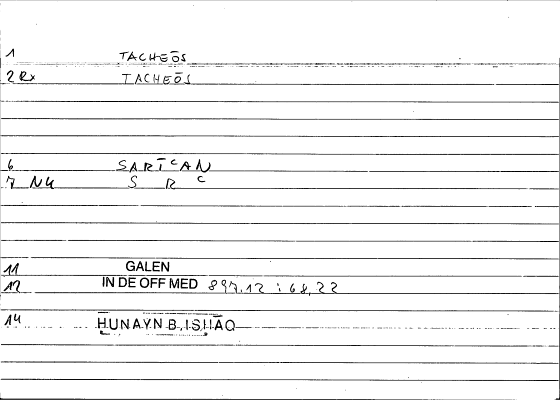 1 TACHEŌS
2 Rx TACHEŌS
6 SARṬᶜAN
7 NG S R C
11 GALEN
12 IN DE OFF MED 897.12 : 68,22
14 HUNAYN B. ISHĀQ